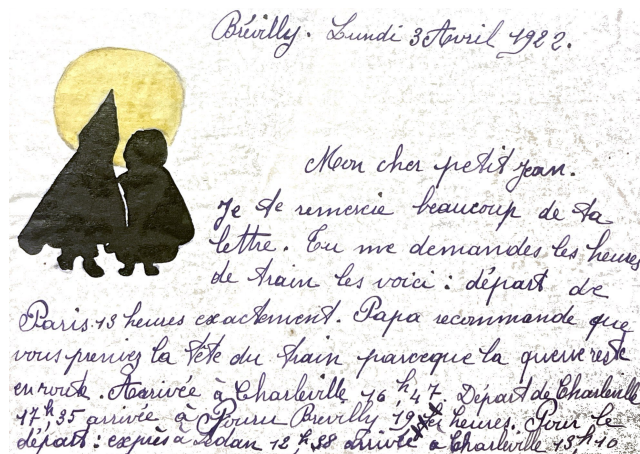 Brévilly. Lundi 3 Avril 1922.
Mon cher petit Jean.
Je te remercie beaucoup de ta
lettre. Tu me demandes les heures
de train les voici : départ de
Paris 13 heures exactement. Papa recommande que
vous preniez la tête du train parceque la queue reste
en route. Arrivée à Charleville 16h,47. Départ de Charleville
17h,35 arrivée à Pouru Brevilly 19 heures. Pour le
départ : exprès à Sedan 12h,38 arrivée à Charleville 13h10